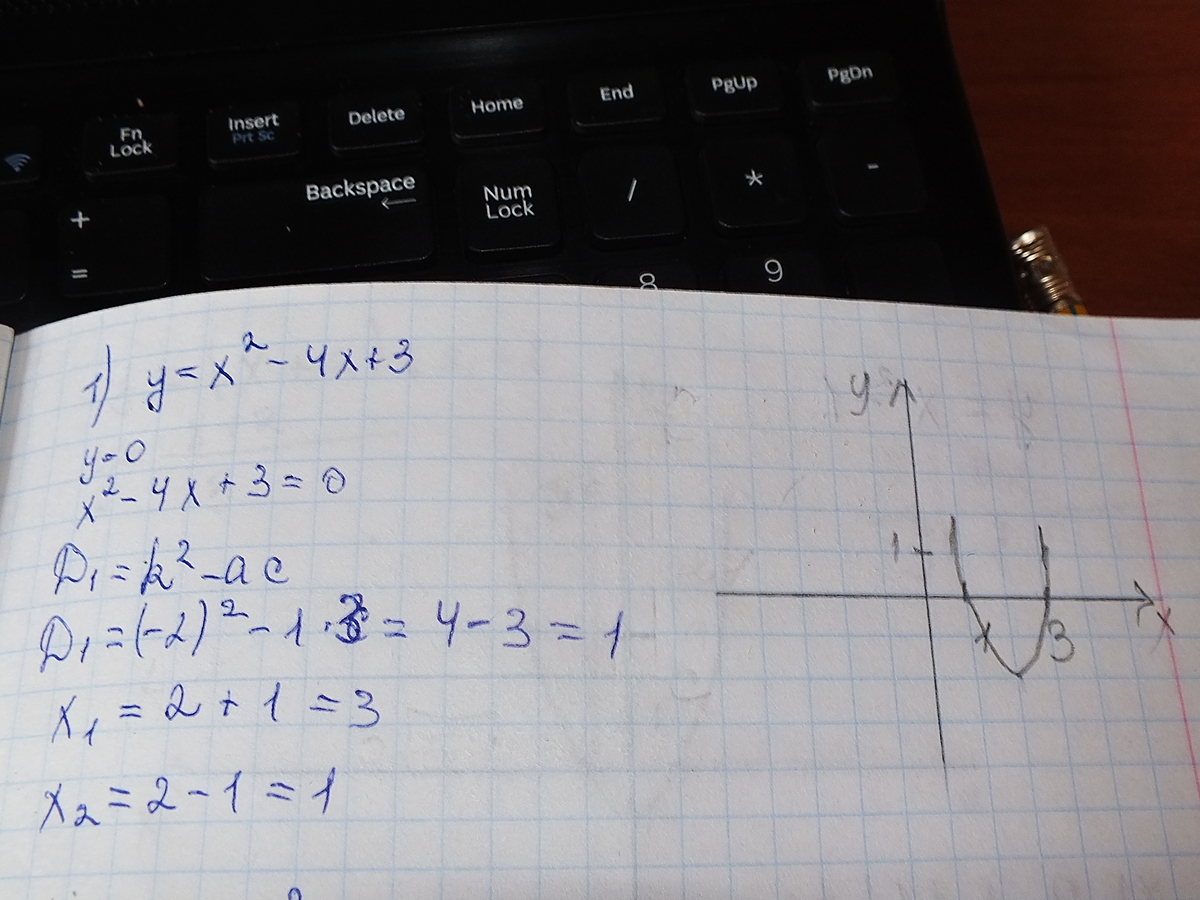 Fn Lock
Insert
Prt Sc
Delete
Home
End
PgUp
PgDn
+
=
Backspace
←
Num Lock
/
*
-
8
9
1) y = x² - 4x + 3
y = 0
x² - 4x + 3 = 0
D₁ = k² - ac
D₁ = (-2)² - 1 · 3 = 4 - 3 = 1
x₁ = 2 + 1 = 3
x₂ = 2 - 1 = 1
y
1
3
x